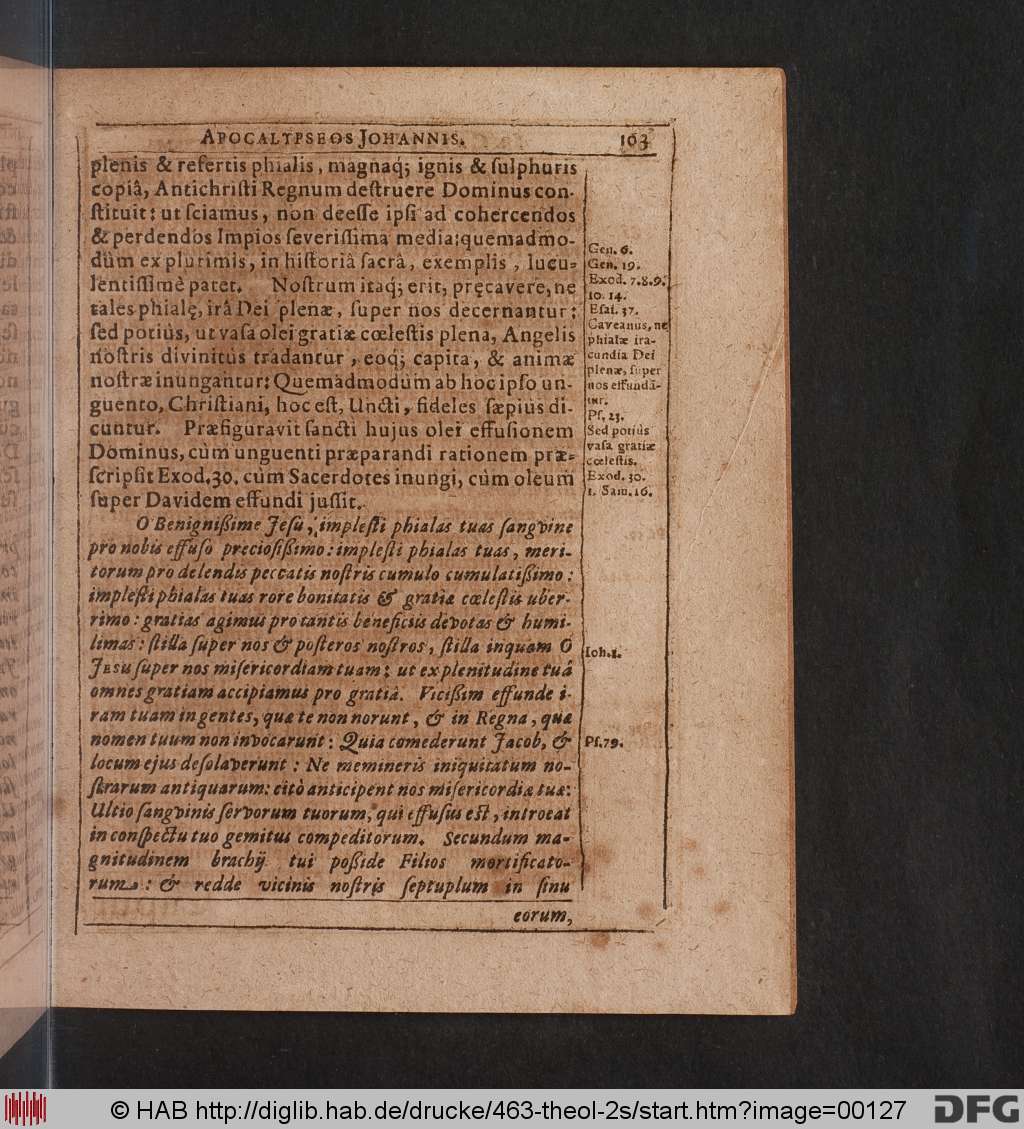 APOCALYPSEOS JOHANNIS. 103
plenis & refertis phialis, magnaq; ignis & ſulphuris
copiâ, Antichriſti Regnum deſtruere Dominus con-
ſtituit: ut ſciamus, non deeſſe ipſi ad cohercendos
& perdendos Impios ſeveriſſima media: quemadmo-
dùm ex plurimis, in hiſtoriâ ſacrâ, exemplis, lucu-
lentiſſimè patet. Noſtrum itaq; erit, pręcavere, ne
tales phialę, irâ Dei plenæ, ſuper nos decernantur:
ſed potiùs, ut vaſa olei gratiæ cœleſtis plena, Angelis
noſtris divinitùs tradantur, eoq; capita, & animæ
noſtræ inungantur: Quemadmodùm ab hoc ipſo un-
guento, Chriſtiani, hoc eſt, Uncti, fideles ſæpiùs di-
cuntur. Præfiguravit ſancti hujus olei effuſionem
Dominus, cùm unguenti præparandi rationem præ-
ſcripſit Exod. 30. cùm Sacerdotes inungi, cùm oleum
ſuper Davidem effundi juſſit.
O Benignißime Jeſu, impleſti phialas tuas ſangvine
pro nobis effuſo precioſißimo: impleſti phialas tuas, meri-
torum pro delendis peccatis noſtris cumulo cumulatißimo:
impleſti phialas tuas rore bonitatis & gratiæ cœleſtis uber-
rimo: gratias agimus pro tantis beneficiis devotas & humi-
limas: ſtilla ſuper nos & poſteros noſtros, ſtilla inquam O
JESU ſuper nos miſericordiam tuam: ut ex plenitudine tuâ
omnes gratiam accipiamus pro gratiâ. Vicißim effunde i-
ram tuam in gentes, quæ te non norunt, & in Regna, quæ
nomen tuum non invocarunt: Quia comederunt Jacob, &
locum ejus deſolaverunt: Ne memineris iniquitatum no-
ſtrarum antiquarum: citò anticipent nos miſericordiæ tuæ:
Ultio ſangvinis ſervorum tuorum, qui effuſus eſt, introeat
in conſpectu tuo gemitus compeditorum. Secundum ma-
gnitudinem brachij tui poßide Filios mortificato-
rum: & redde vicinis noſtris ſeptuplum in ſinu
eorum,
Gen. 6.
Gen. 19.
Exod. 7.8.9.
10. 14.
Eſai. 37.
Caveamus, ne
phialæ ira-
cundia Dei
plenæ, ſuper
nos effundã-
tur.
Pſ. 23.
Sed potiùs
vaſa gratiæ
cœleſtis.
Exod. 30.
1. Sam. 16.
Ioh. 1.
Pſ. 79.
© HAB http://diglib.hab.de/drucke/463-theol-2s/start.htm?image=00127
DFG